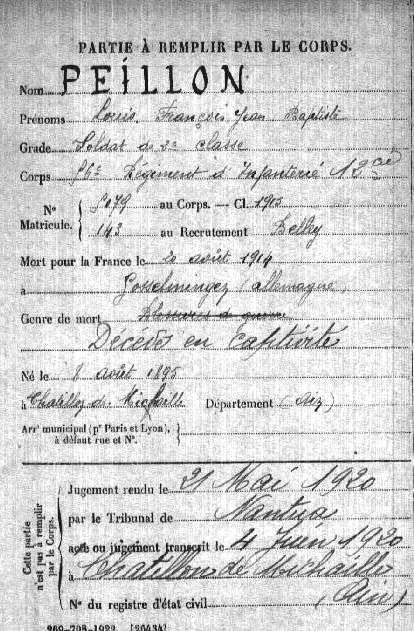 PARTIE À REMPLIR PAR LE CORPS.
Nom PEILLON
Prénoms Louis, François, Jean Baptiste
Grade Soldat de 2e classe
Corps Régiment d'Infanterie 12 cie
N° Matricule. { 5079 au Corps. — Cl. 1915
143 au Recrutement Belley
Mort pour la France le 20 août 1914
à (allemagne)
Genre de mort Blessures de guerre
Décédé en Captivité
Né le 8 août 1895
à Chatillon de Michaille Département (Ain)
Arrt municipal (pr Paris et Lyon), à défaut rue et N°. {
Cette partie n'est pas à remplir par le Corps.
Jugement rendu le 21 Mai 1920
par le Tribunal de Nantua
acte ou jugement transcrit le 4 Juin 1920
à Chatillon de Michaille
N° du registre d'état civil (Ain)
969-708-1922. [26434]